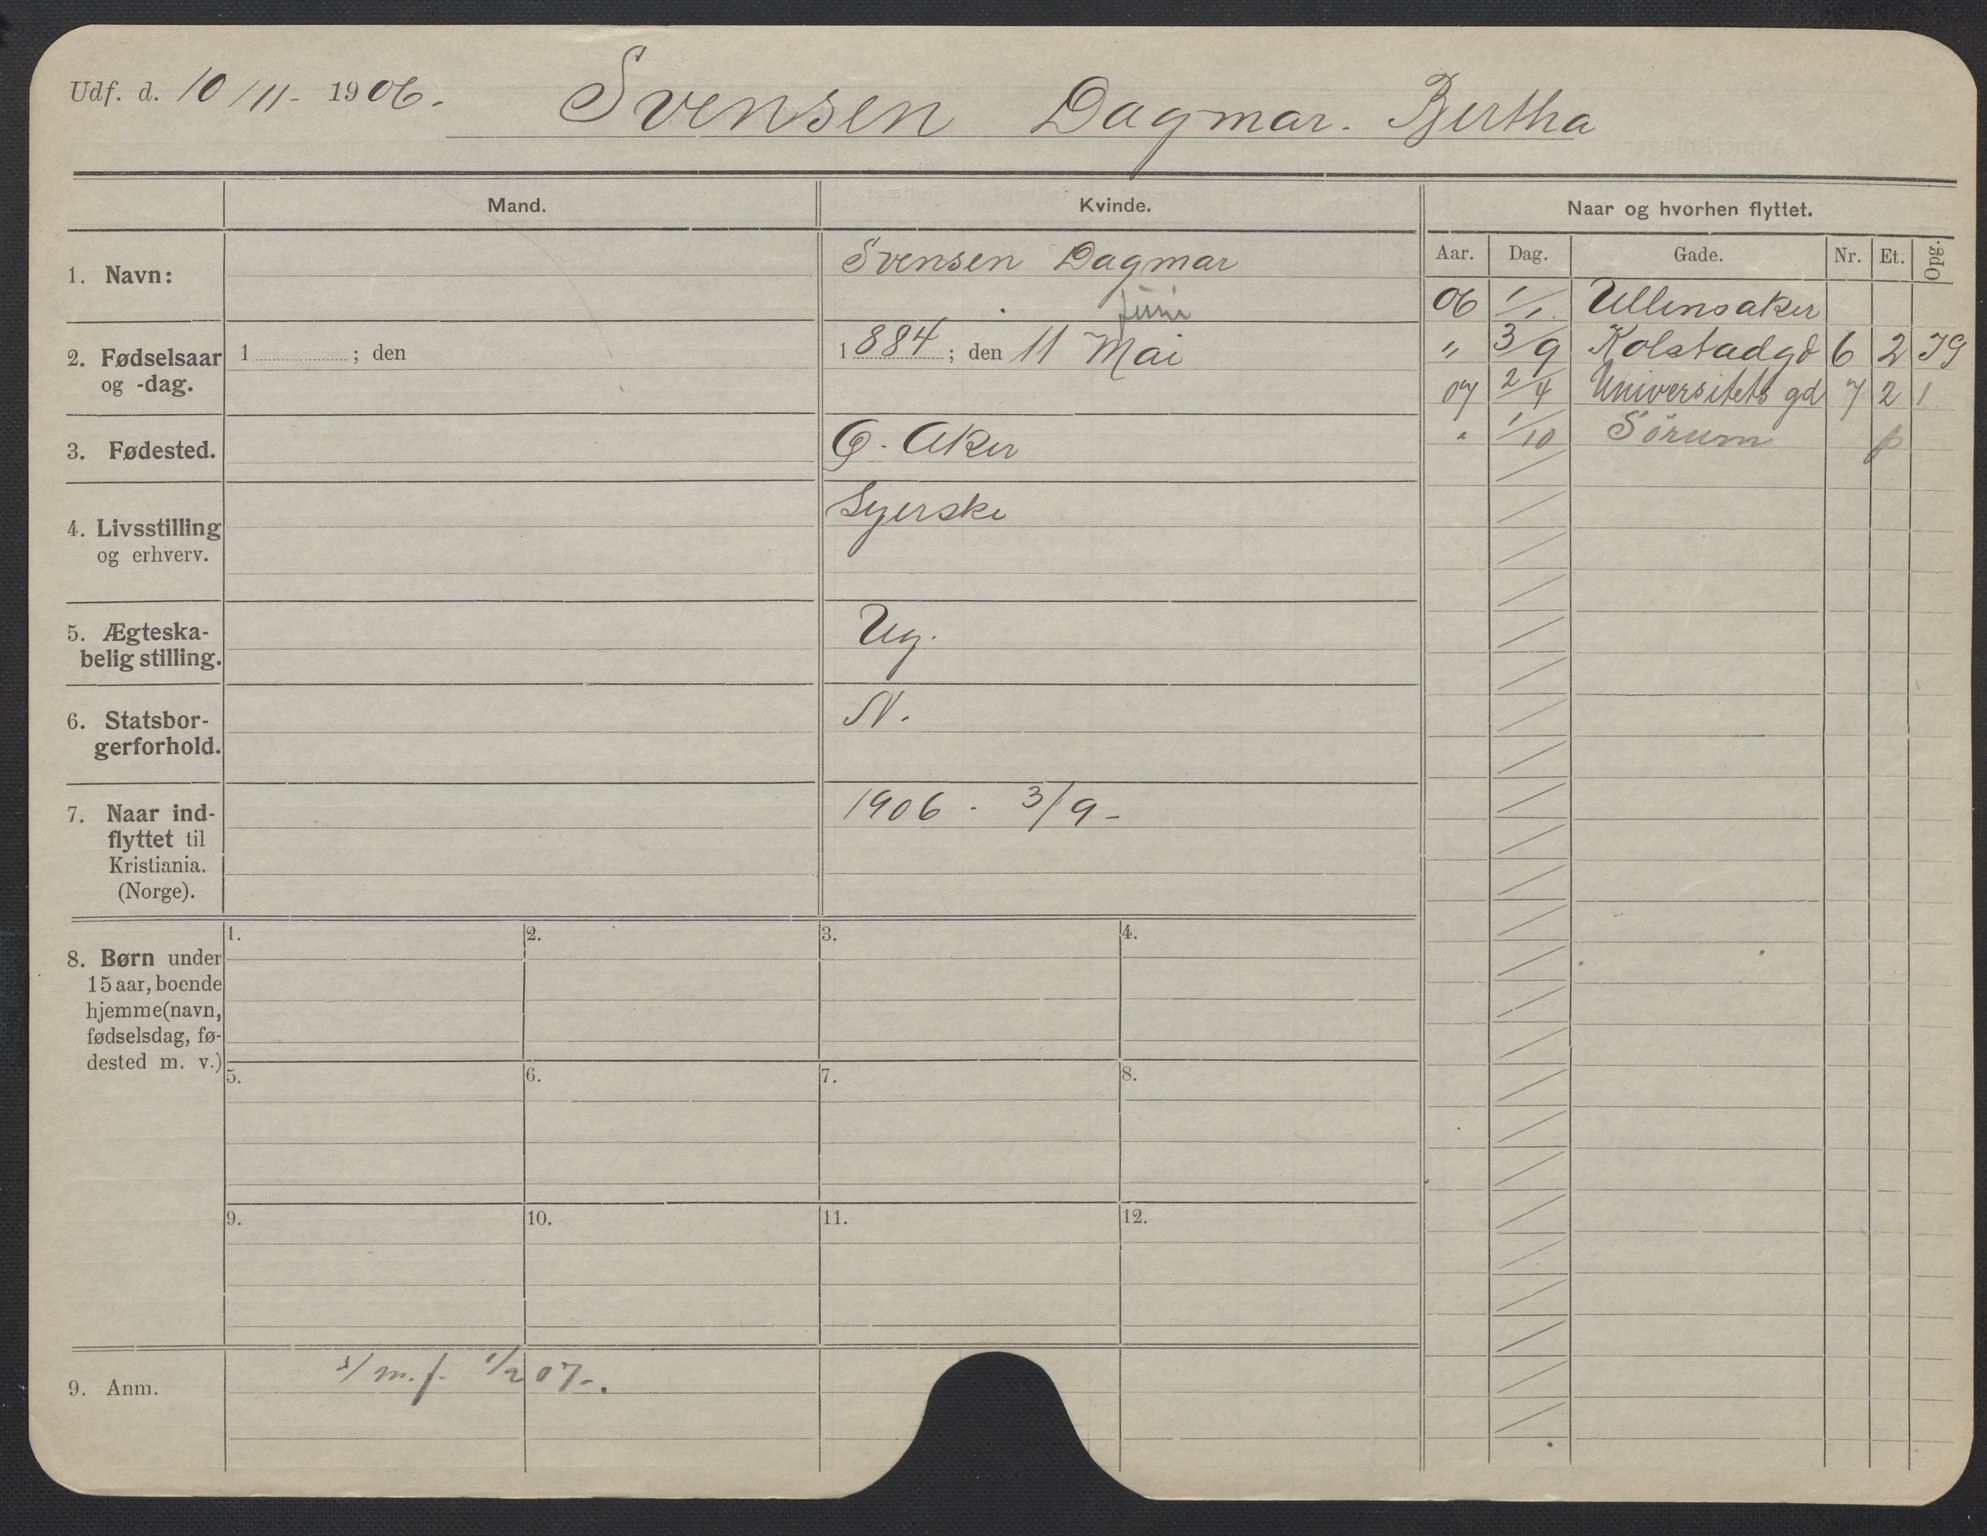 Udf. d. 10/11- 1906.
Svensen Dagmar. Bertha
Mand.
Kvinde.
Naar og hvorhen flyttet.
Aar. Dag. Gade. Nr. Et. Opg.
1. Navn:
Svensen Dagmar
Juni
2. Fødselsaar
og -dag.
1 ; den
1884 ; den 11 Mai
3. Fødested.
Ø. Aker
4. Livsstilling
og erhverv.
Syerske
5. Ægteska-
belig stilling.
Ug.
6. Statsbor-
gerforhold.
N.
7. Naar ind-
flyttet til
Kristiania.
(Norge).
1906 - 3/9-
06 1/1 Ullensaker
" 3/9 Kolstadgd 6 2
07 2/4 Universitets gd 7 2 1
" 1/10 Sørum p
8. Børn under
15 aar, boende
hjemme (navn,
fødselsdag, fø-
dested m. v.)
1. 2. 3. 4.
5. 6. 7. 8.
9. 10. 11. 12.
9. Anm.
m.f. 1/2 07-.